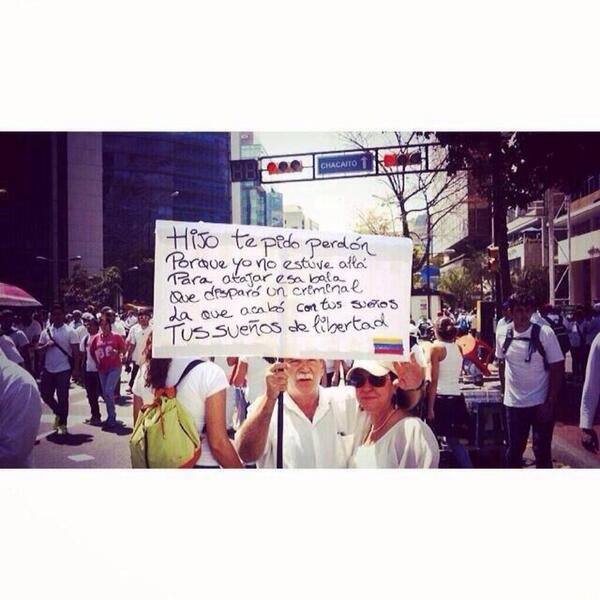 CHACAITO
Hijo te pido perdón
Porque yo no estuve allá
Para atajar esa bala
Que disparó un criminal
La que acabó con tus sueños
Tus sueños de libertad